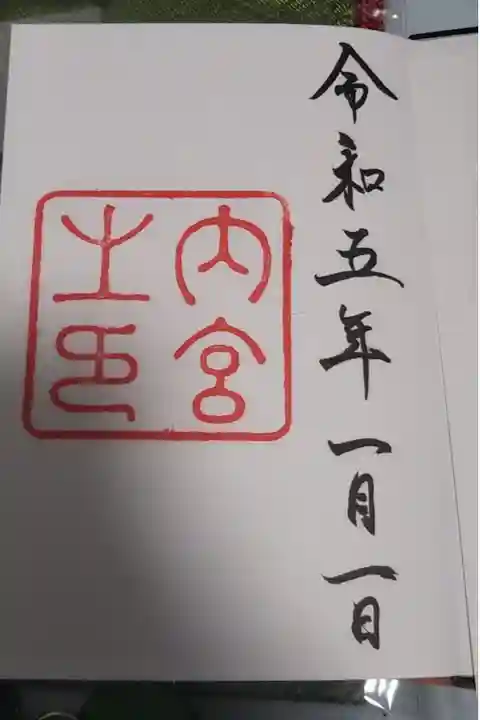 令和五年一月一日
内宮
之印